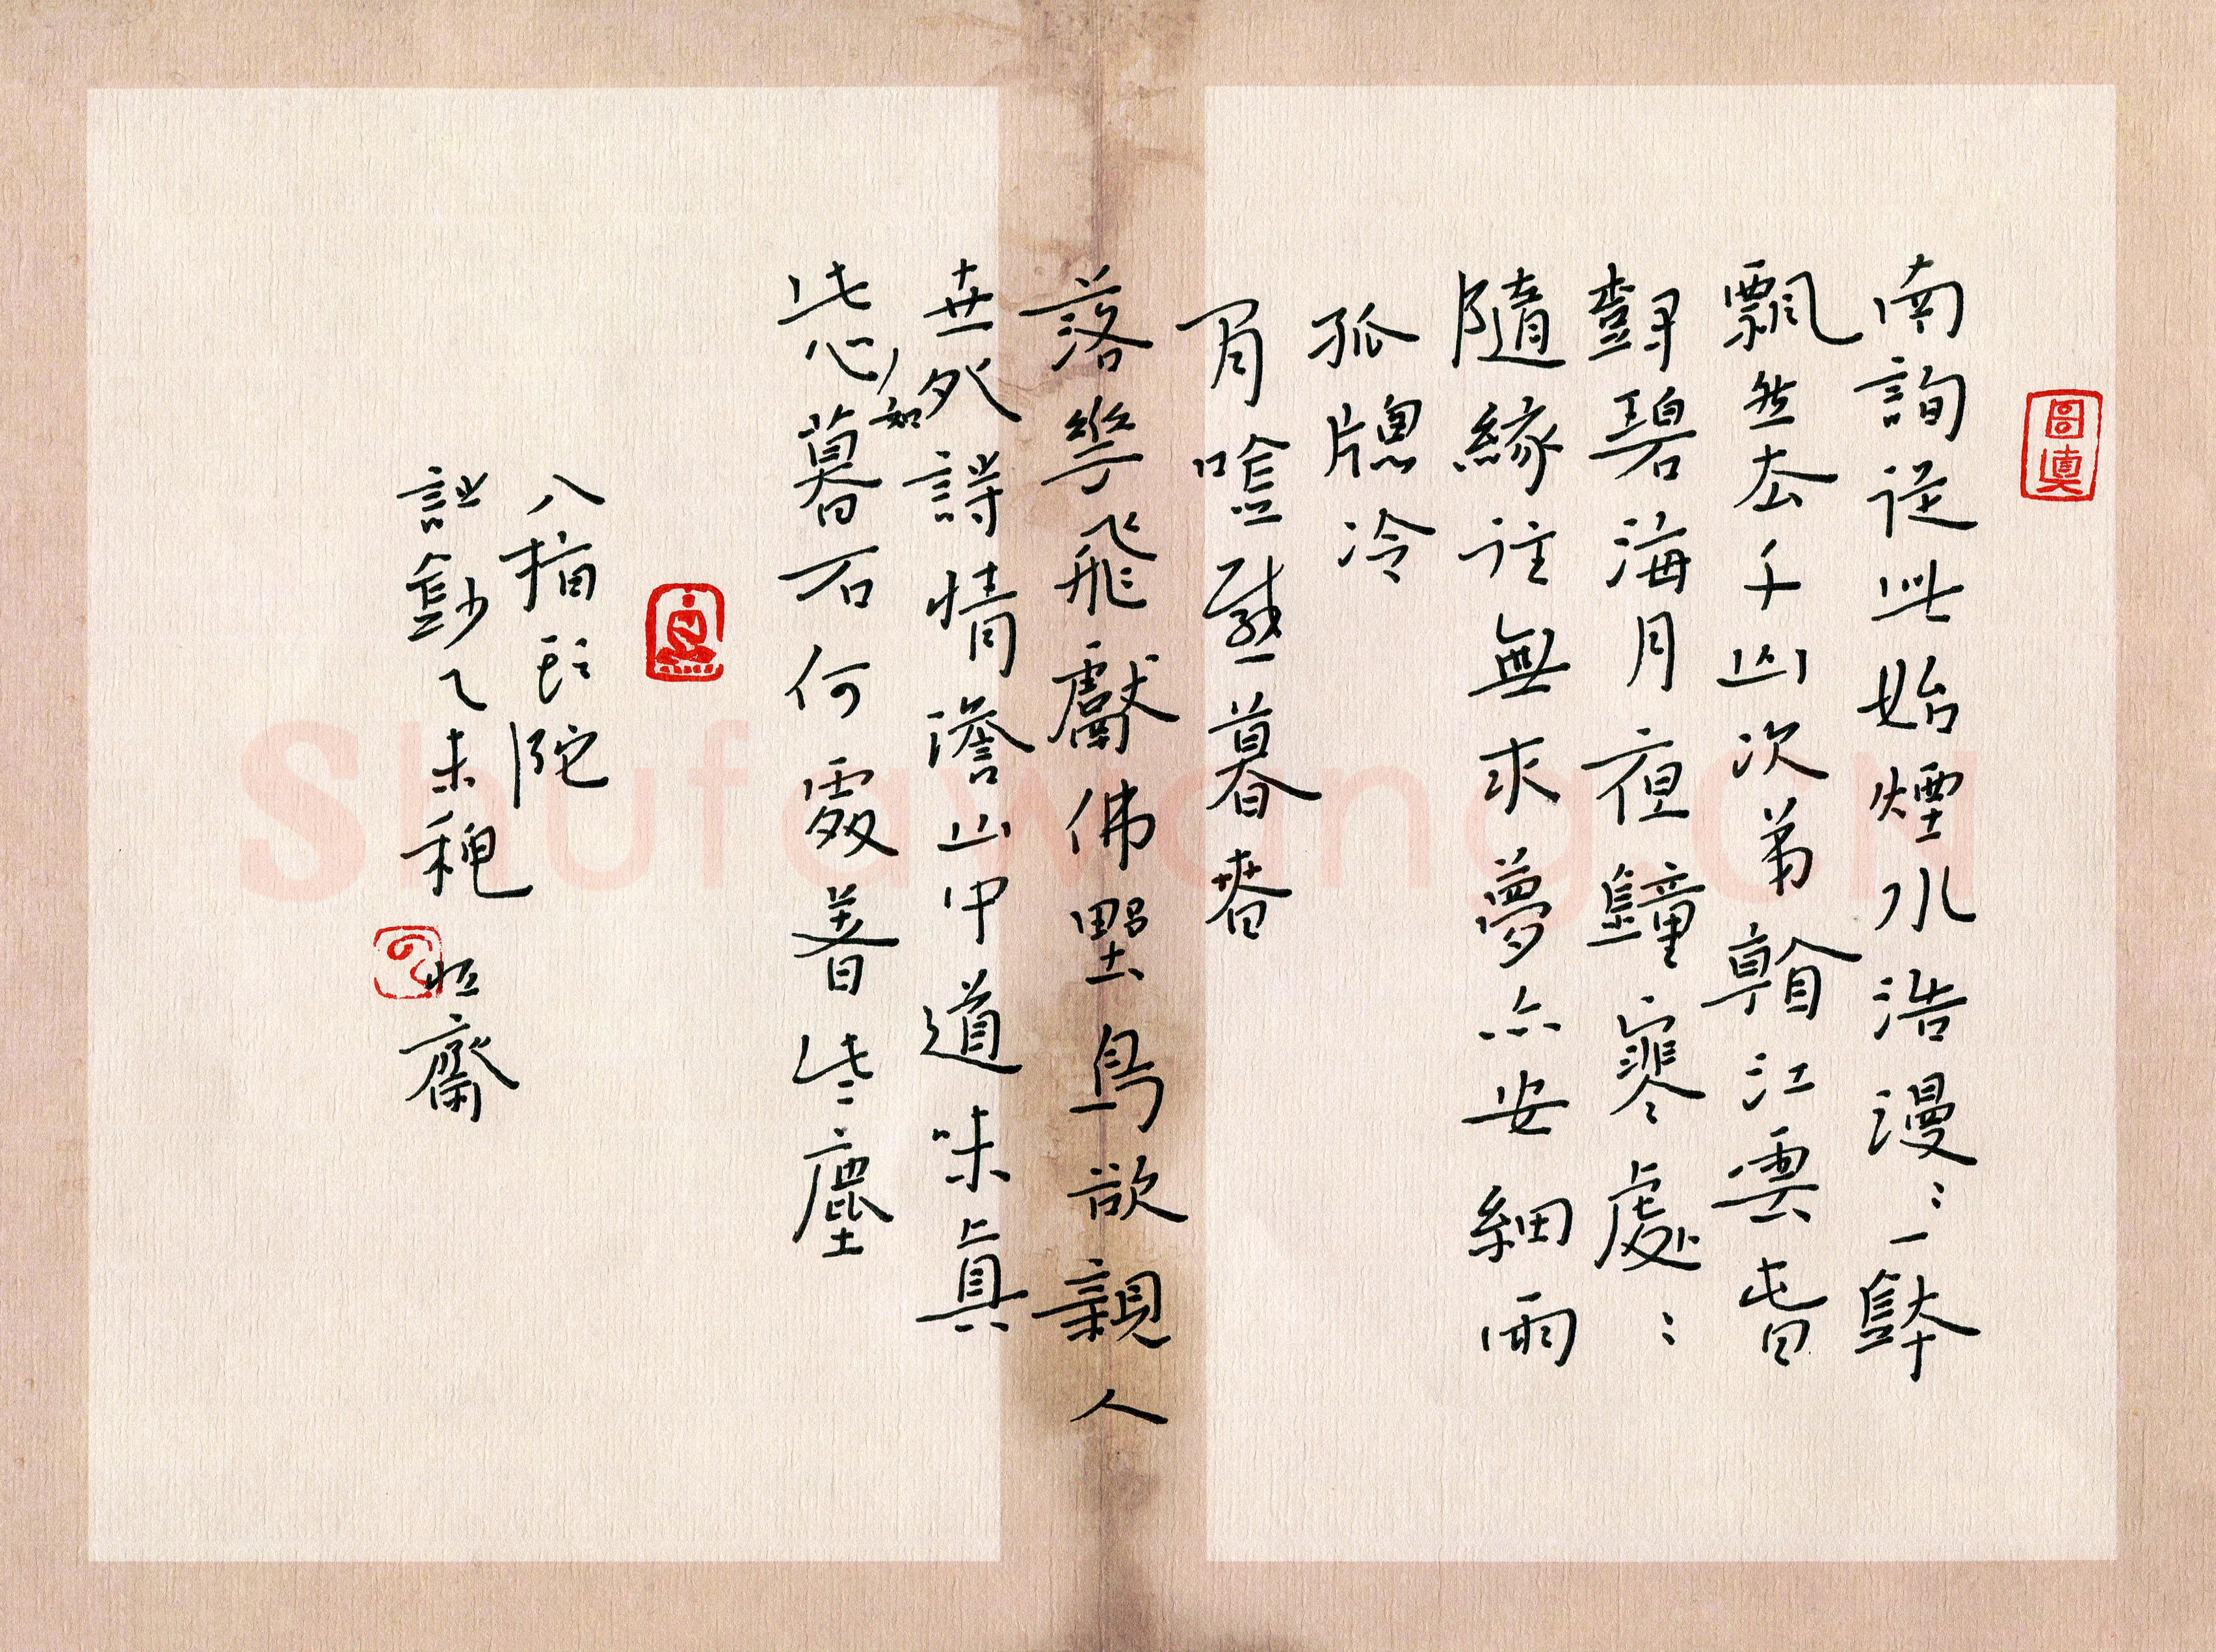 南詢從此始煙水浩漫：一鉢
飄然去千山次第看江雲旾
對碧海月夜鐘寒處：
隨緣住無求夢亦安細雨
孤牕冷
唫暮春
落華飛獻佛野鳥欲親人
世外詩情澹山中道味真
此心如暮石何處著些塵
八指頭陀
詩鈔乙未穐 恒齋
Shufawang.CN